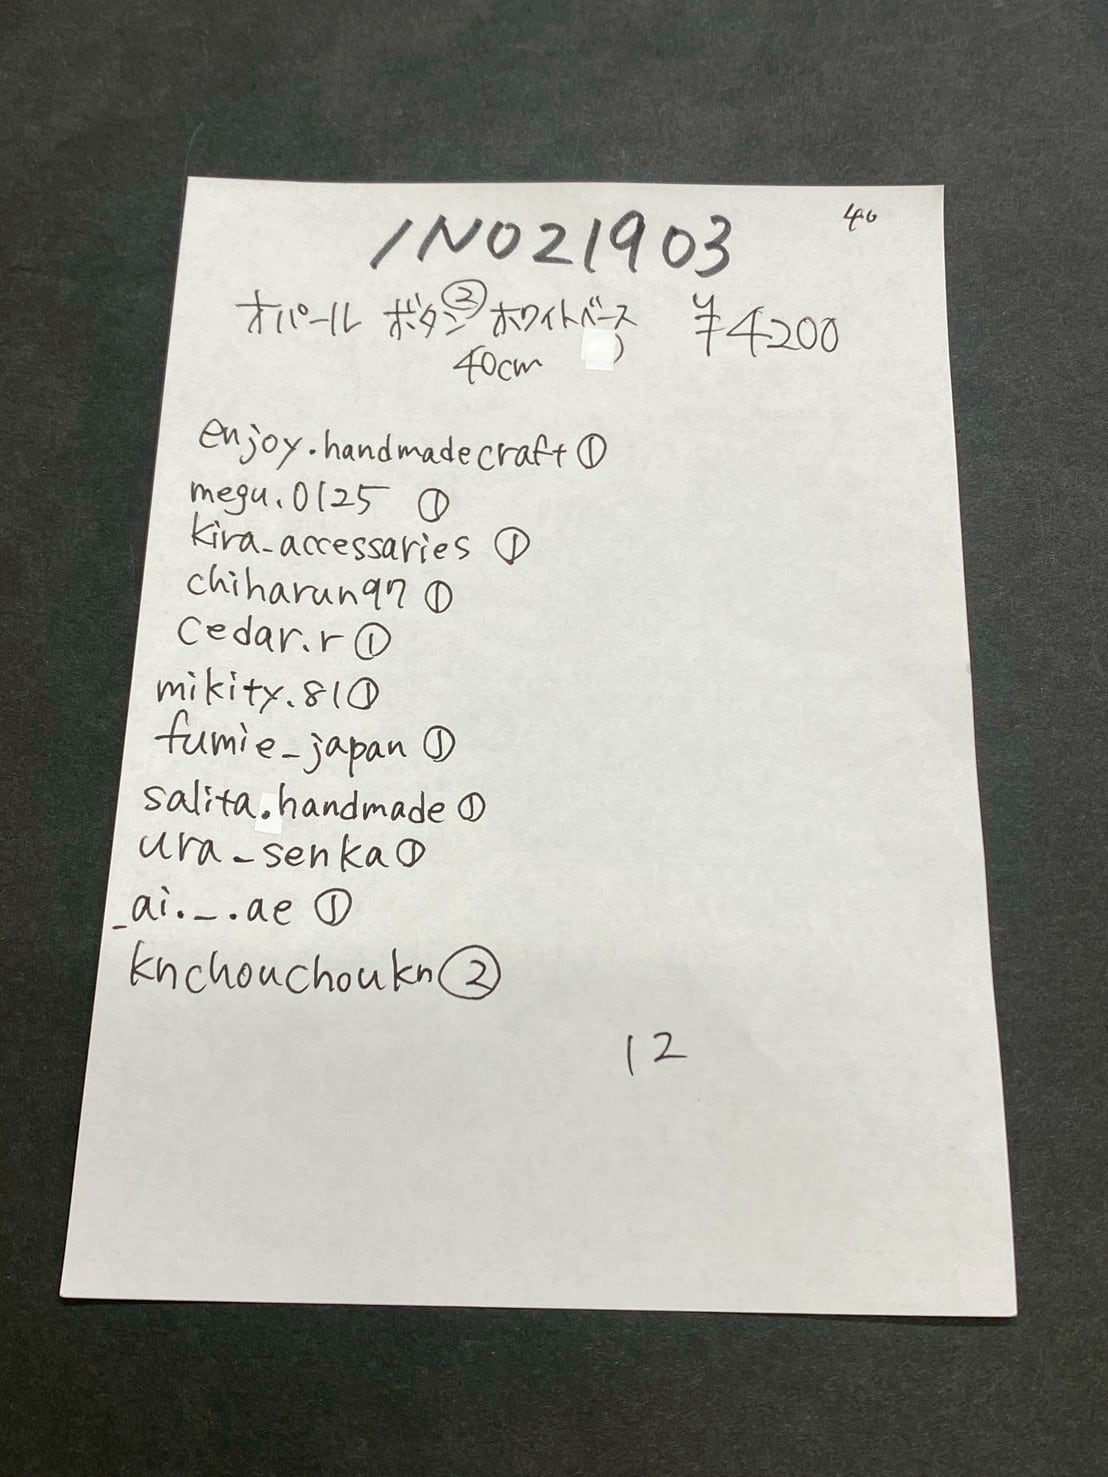 40
INO21903
オパール ボタン② ホワイトベース ¥4200
40cm )
enjoy.handmadecraft①
megu.0125 ①
kira_accessaries ①
chiharun97 ①
cedar.r ①
mikity.81①
fumie_japan ①
salita.handmade ①
ura_senka①
_ai._.ae ①
knchouchoukn②
12